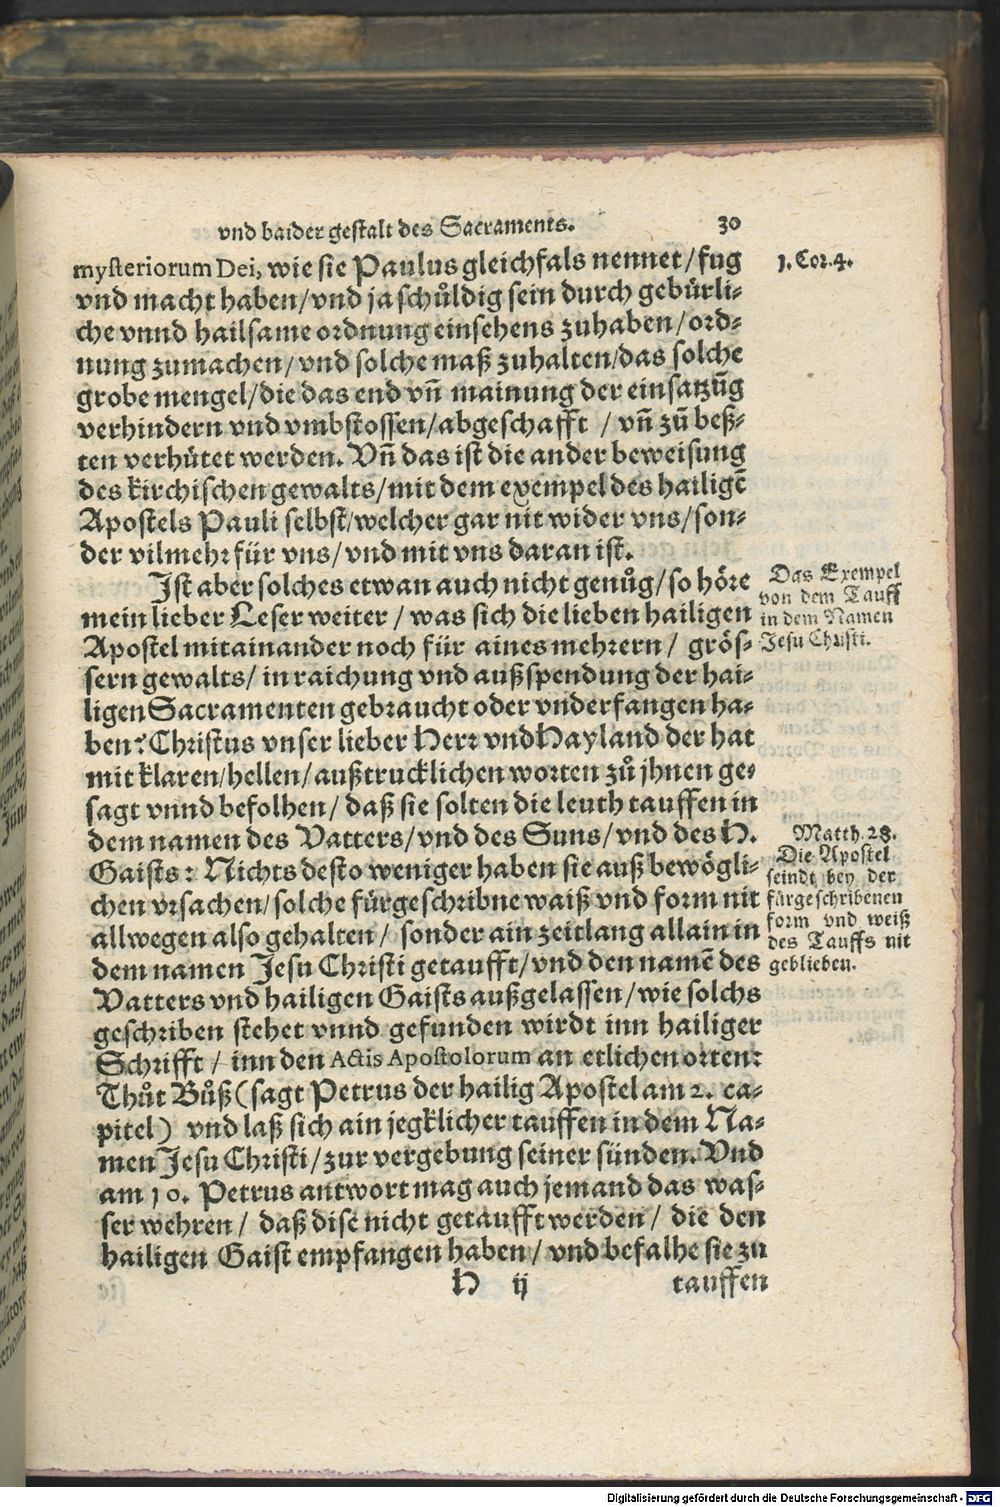 vnd baider gestalt des Sacraments. 30
mysteriorum Dei, wie sie Paulus gleichfals nennet/fug
vnd macht haben/vnd ja schůldig sein durch gebürli-
che vnnd hailsame ordnung einsehens zuhaben/ord-
nung zumachen/vnd solche maß zuhalten/das solche
grobe mengel/die das end vñ mainung der einsatzũg
verhindern vnd vmbstossen/abgeschafft / vñ zũ beß-
ten verhütet werden. Vñ das ist die ander beweisung
des kirchischen gewalts/mit dem exempel des hailigẽ
Apostels Pauli selbst/welcher gar nit wider vns/son-
der vilmehr für vns/vnd mit vns daran ist.
Ist aber solches etwan auch nicht genůg/so höre
mein lieber Leser weiter / was sich die lieben hailigen
Apostel mitainander noch für aines mehrern/ grös-
sern gewalts/ in raichung vnd außspendung der hai-
ligen Sacramenten gebraucht oder vnderfangen ha-
ben? Christus vnser lieber Herr vnd Hayland der hat
mit klaren/hellen/außtrucklichen worten zů jhnen ge-
sagt vnnd befolhen/ daß sie solten die leuth tauffen in
dem namen des Vatters/vnd des Suns/vnd des H.
Gaists: Nichts desto weniger haben sie auß bewögli-
chen vrsachen/solche fürgeschribne waiß vnd form nit
allwegen also gehalten/ sonder ain zeitlang allain in
dem namen Jesu Christi getaufft/vnd den namẽ des
Vatters vnd hailigen Gaists außgelassen/wie solchs
geschriben stehet vnnd gefunden wirdt inn hailiger
Schrifft / inn den Actis Apostolorum an etlichen orten:
Thůt Bůß (sagt Petrus der hailig Apostel am 2. ca-
pitel) vnd laß sich ain jegklicher tauffen in dem Na-
men Jesu Christi/zur vergebung seiner sünden. Vnd
am 10. Petrus antwort mag auch jemand das was-
ser wehren/ daß dise nicht getaufft werden/ die den
hailigen Gaist empfangen haben/ vnd befalhe sie zu
H ij tauffen
1. Cor. 4.
Das Exempel
von dem Tauff
in dem Namen
Jesu Christi.
Matth. 28.
Die Apostel
seindt bey der
fürgeschribenen
form vnd weiß
des Tauffs nit
geblieben.
Digitalisierung gefördert durch die Deutsche Forschungsgemeinschaft - DFG